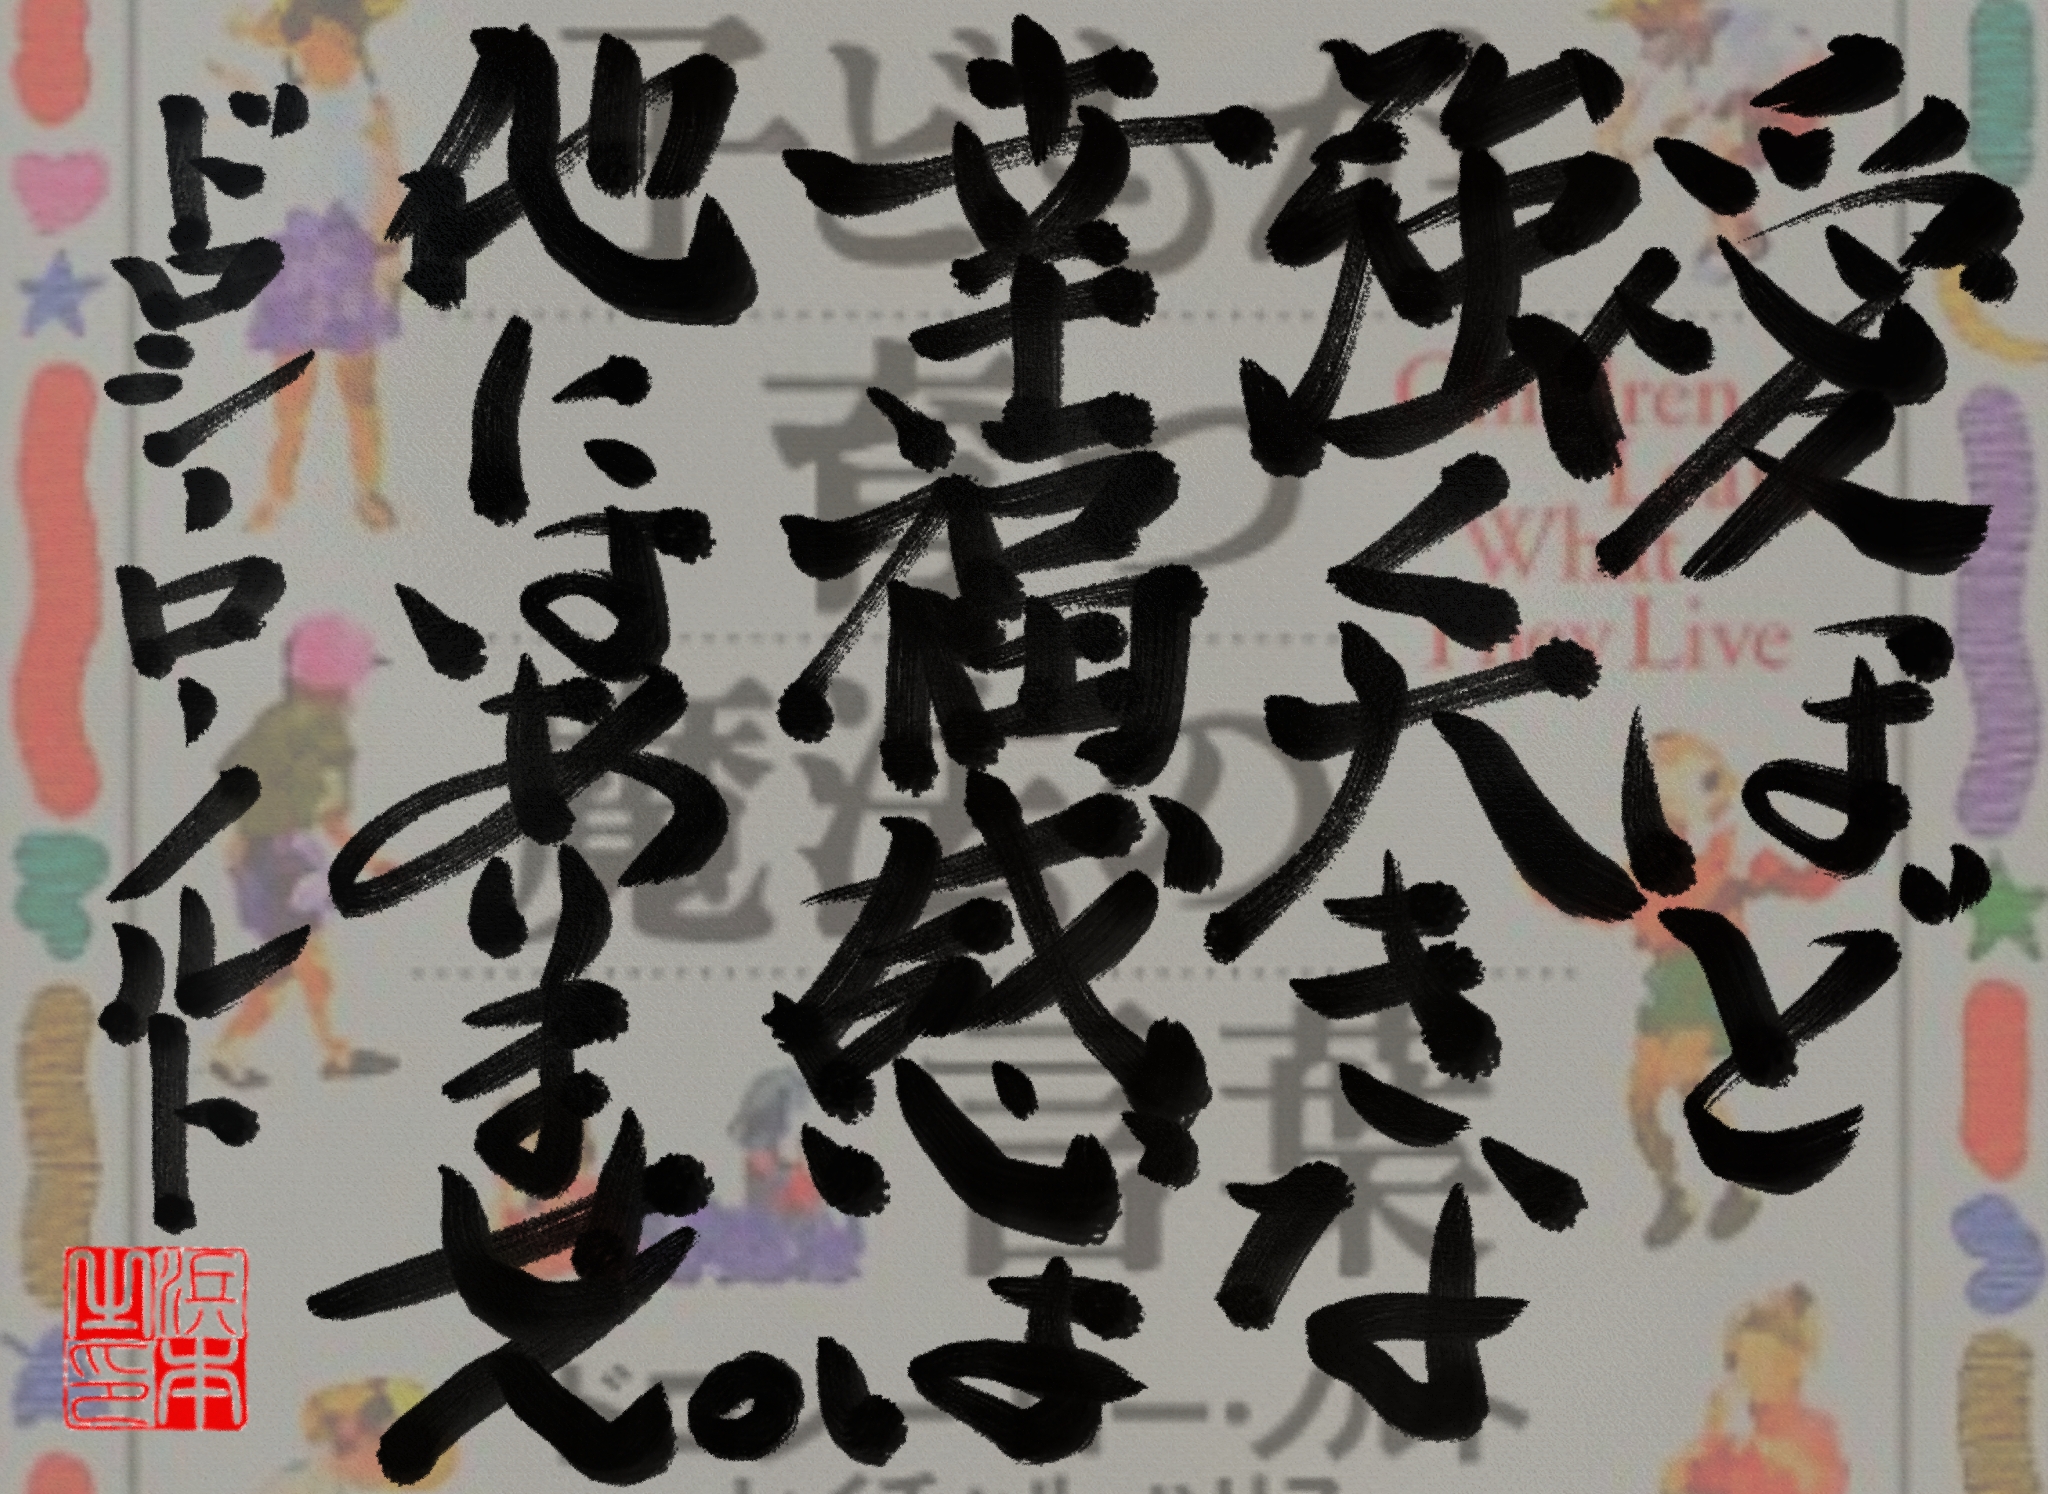 愛ほど
強く大きな
幸福感は、
他にはありません。
ドロシーローノルト
浜本之印
子どもが
育つ
魔法の
言葉
Children
Learn
What
They Live